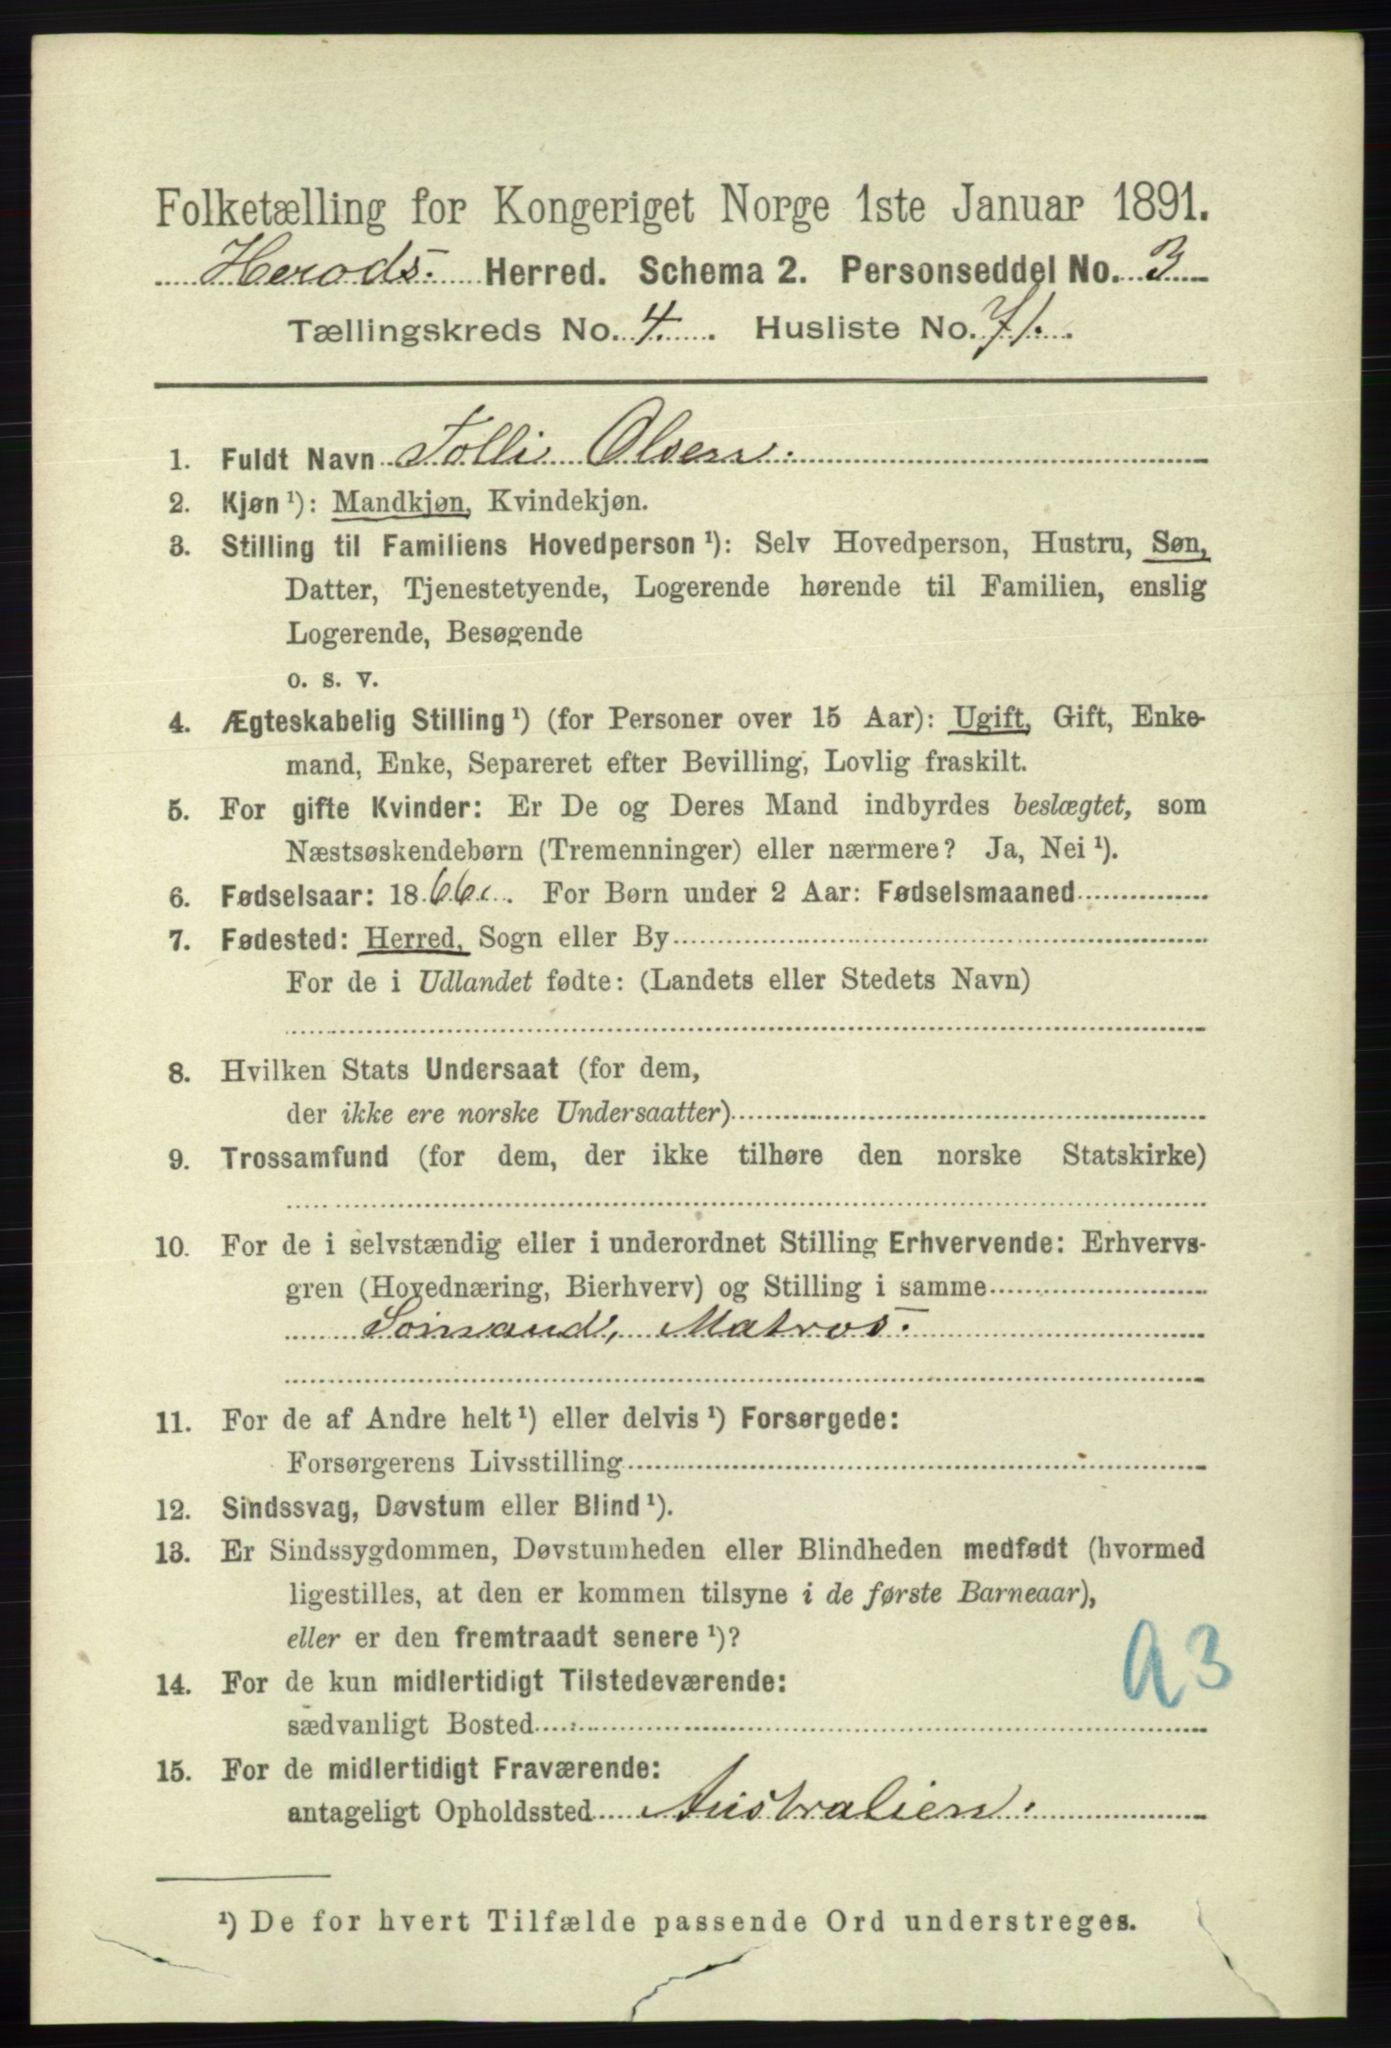 Folketælling for Kongeriget Norge 1ste Januar 1891.
Herods. Herred. Schema 2. Personseddel No. 3
Tællingskreds No. 4. Husliste No. 71.
1. Fuldt Navn Tolli Olsen.
2. Kjøn ¹): Mandkjøn, Kvindekjøn.
3. Stilling til Familiens Hovedperson ¹): Selv Hovedperson, Hustru, Søn,
Datter, Tjenestetyende, Logerende hørende til Familien, enslig
Logerende, Besøgende
o. s. v.
4. Ægteskabelig Stilling ¹) (for Personer over 15 Aar): Ugift, Gift, Enke-
mand, Enke, Separeret efter Bevilling, Lovlig fraskilt.
5. For gifte Kvinder: Er De og Deres Mand indbyrdes beslægtet, som
Næstsøskendebørn (Tremenninger) eller nærmere? Ja, Nei ¹).
6. Fødselsaar: 1866. For Børn under 2 Aar: Fødselsmaaned
7. Fødested: Herred, Sogn eller By
For de i Udlandet fødte: (Landets eller Stedets Navn)
8. Hvilken Stats Undersaat (for dem,
der ikke ere norske Undersaatter)
9. Trossamfund (for dem, der ikke tilhøre den norske Statskirke)
10. For de i selvstændig eller i underordnet Stilling Erhvervende: Erhvervs-
gren (Hovednæring, Bierhverv) og Stilling i samme
Sömand, Matros.
11. For de af Andre helt ¹) eller delvis ¹) Forsørgede:
Forsørgerens Livsstilling
12. Sindssvag, Døvstum eller Blind ¹).
13. Er Sindssygdommen, Døvstumheden eller Blindheden medfødt (hvormed
ligestilles, at den er kommen tilsyne i de første Barneaar),
eller er den fremtraadt senere ¹)?
a 3
14. For de kun midlertidigt Tilstedeværende:
sædvanligt Bosted
15. For de midlertidigt Fraværende:
antageligt Opholdssted Australien.
¹) De for hvert Tilfælde passende Ord understreges.